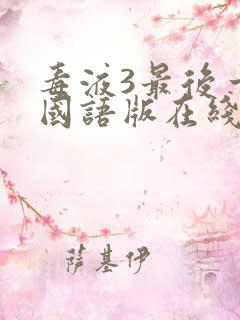 毒液3最后一
國語版在綫
萨基伊